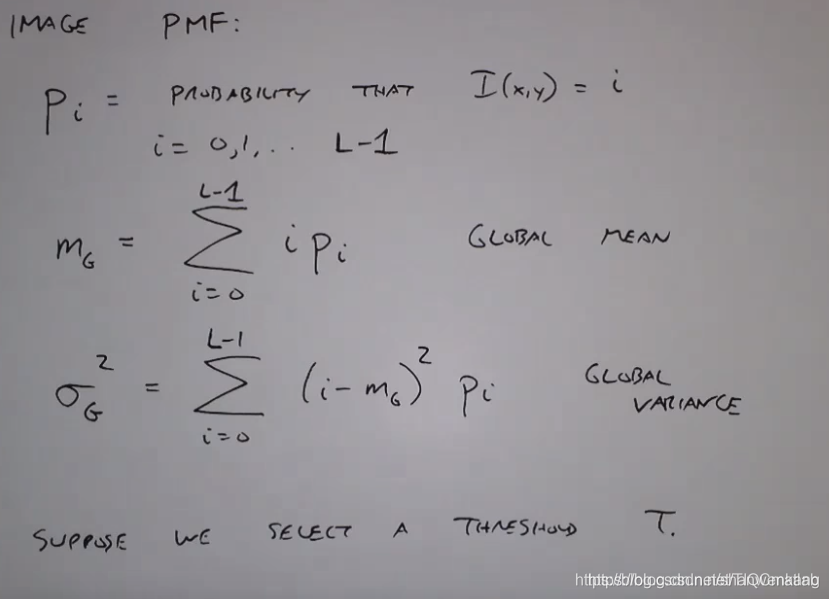 IMAGE PMF:
Pi = PROBABILITY THAT I(x,y) = i
i = 0,1,.. L-1
m_G = ∑_{i=0}^{L-1} i p_i GLOBAL MEAN
σ_G^2 = ∑_{i=0}^{L-1} (i - m_G)^2 p_i GLOBAL
VARIANCE
SUPPOSE WE SELECT A THRESHOLD T.